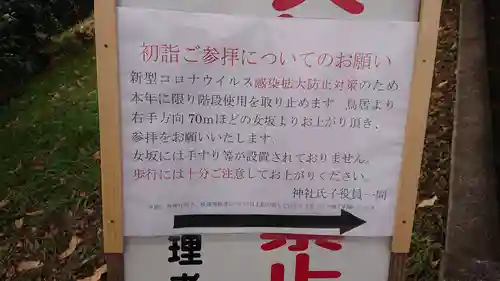 初詣ご参拝についてのお願い
新型コロナウイルス感染拡大防止対策のため
本年に限り階段使用を取り止めます 鳥居より
右手方向70mほどの女坂よりお上がり頂き、
参拝をお願いいたします
女坂には手すり等が設置されておりません。
歩行には十分ご注意してお上がりください。
神社氏子役員一同
理